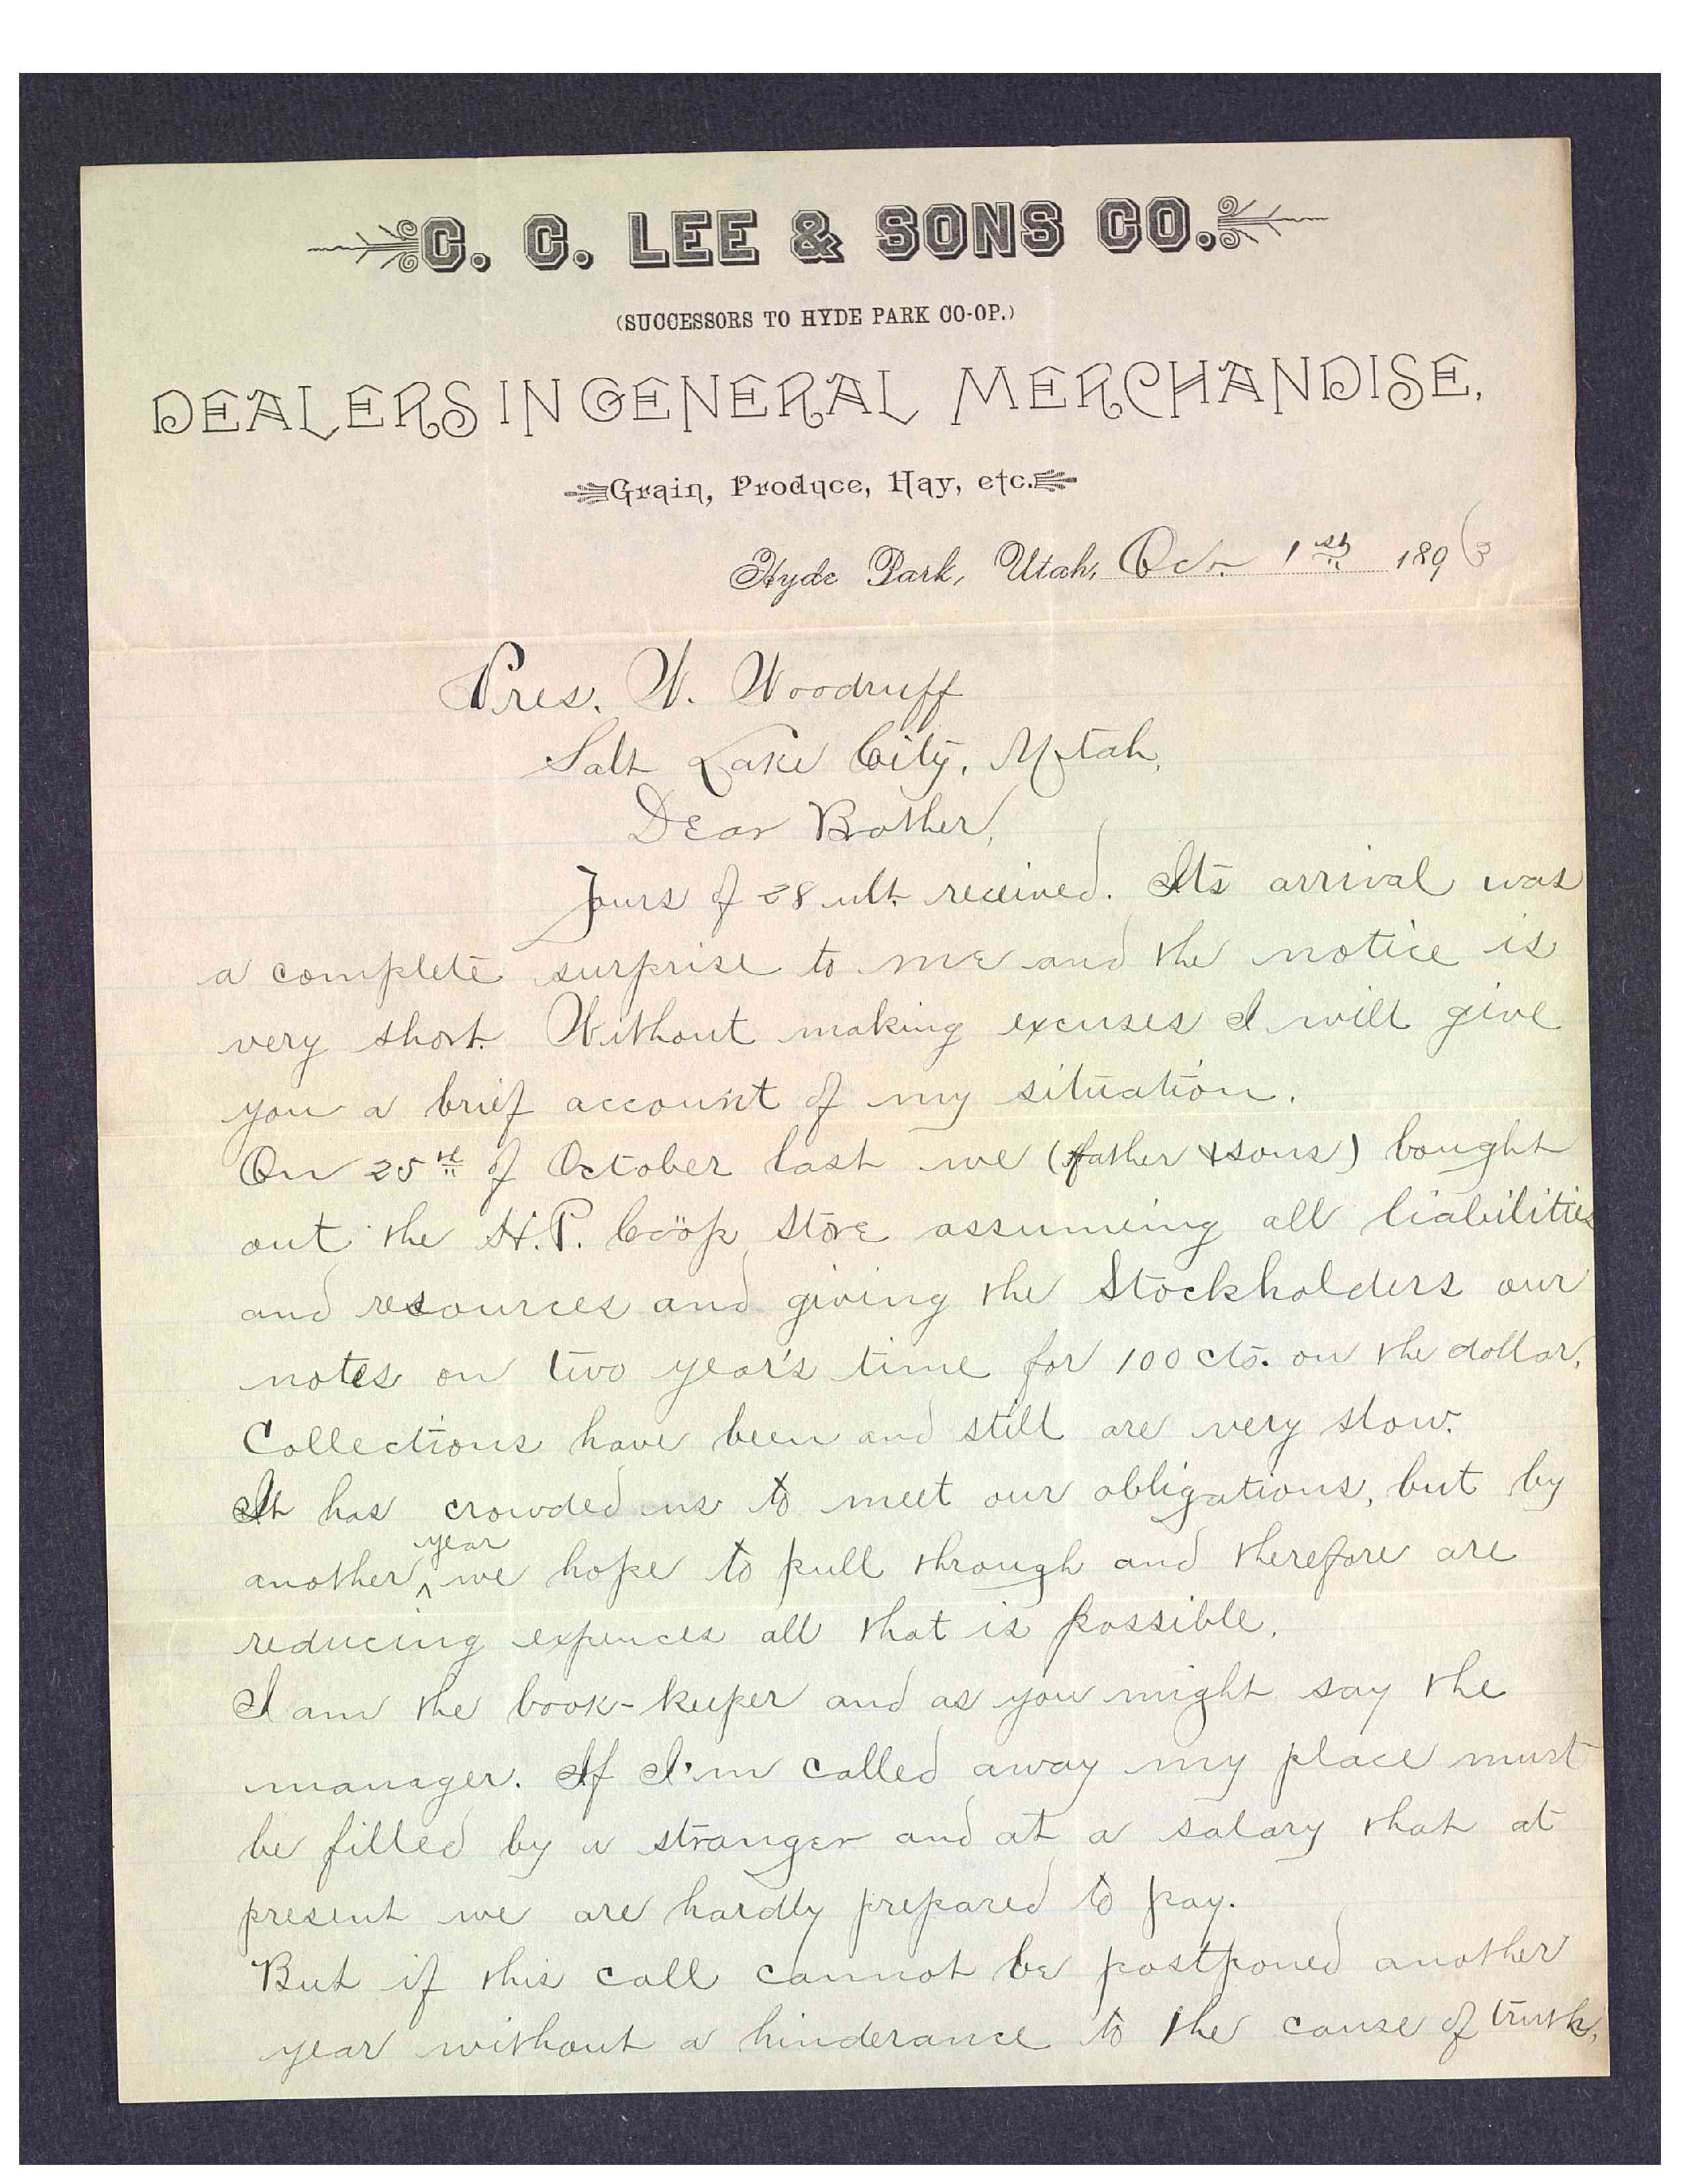 C. C. LEE & SONS CO.
(SUCCESSORS TO HYDE PARK CO-OP.)
DEALERS IN GENERAL MERCHANDISE,
Grain, Produce, Hay, etc.
Hyde Park, Utah, Oct. 1st 1893
Pres. W. Woodruff
Salt Lake City, Utah,
Dear Brother,
Yours of 28 ult. received. Its arrival was
a complete surprise to me and the notice is
very short. Without making excuses I will give
you a brief account of my situation.
On 25th of October last we (father & sons) bought
out the H.P. Coöp Store assuming all liabilities
and resources and giving the Stockholders our
notes on two year's time for 100 cts. on the dollar.
Collections have been and still are very slow.
It has crowded us to meet our obligations, but by
another ^year we hope to pull through and therefore are
reducing expences all that is possible.
I am the book-keeper and as you might say the
manager. If I'm called away my place must
be filled by a stranger and at a salary that at
present we are hardly prepared to pay.
But if this call cannot be postponed another
year without a hinderance to the cause of truth,